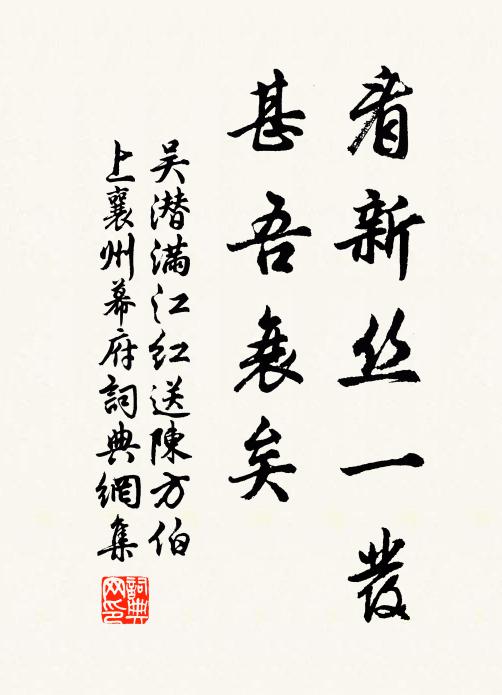 看新丝一發
甚吾衰矣
吴潜满江红送陳方伯
上襄州幕府詞典網集
詞典网印